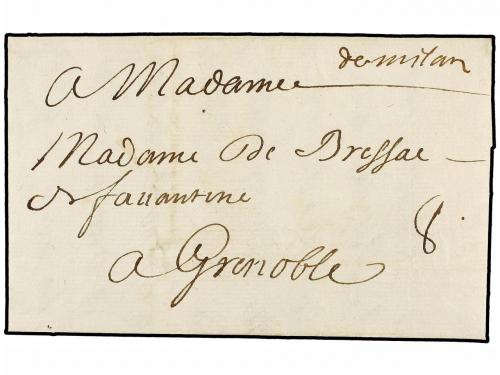 de milan
A Madame
Madame De Bressac
A Grenoble
8